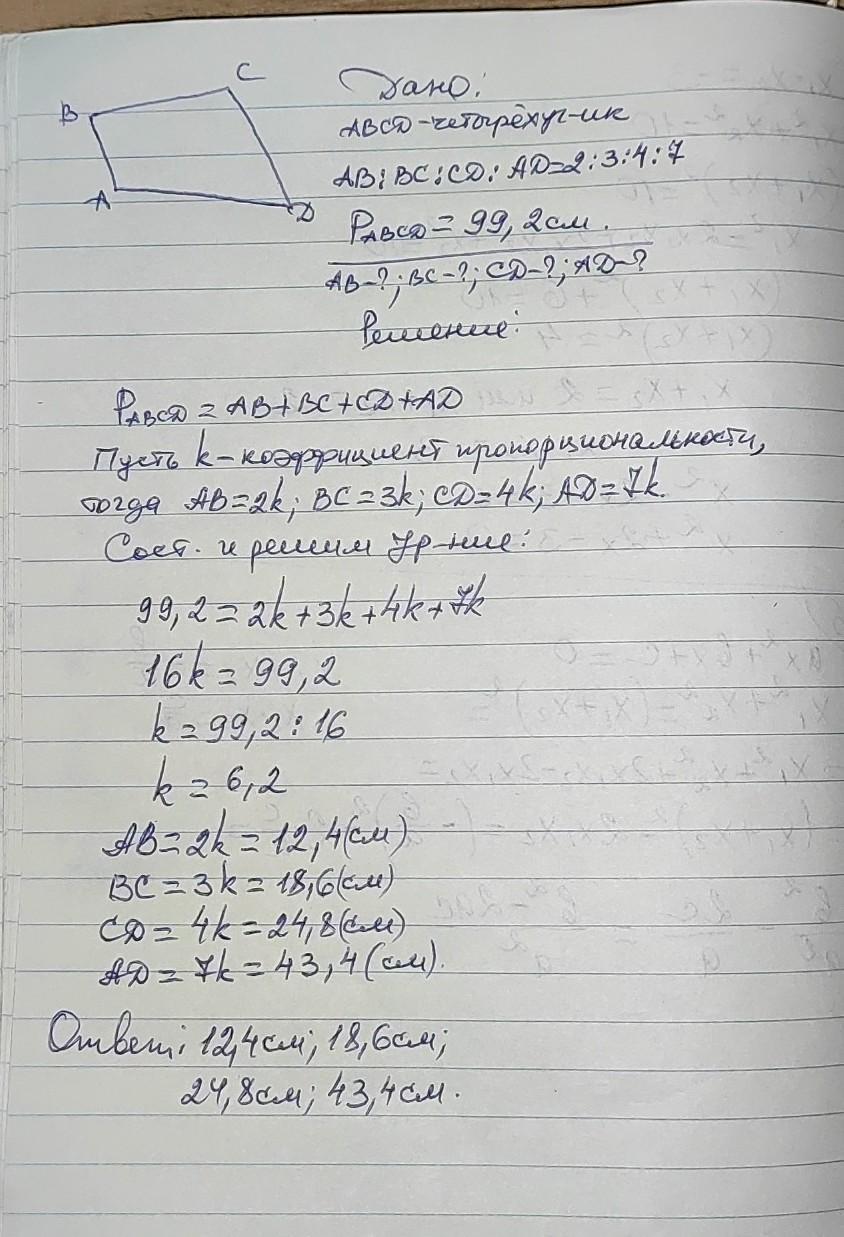 B
C
A
D
Дано:
ABCD-четырёхуг-ик
AB:BC:CD:AD=2:3:4:7
P_ABCD=99,2см.
AB-?; BC-?; CD-?; AD-?
Решение:
P_ABCD=AB+BC+CD+AD
Пусть k-коэффициент пропорциональности,
тогда AB=2k; BC=3k; CD=4k; AD=7k.
Сост. и решим ур-ние:
99,2=2k+3k+4k+7k
16k=99,2
k=99,2:16
k=6,2
AB=2k=12,4(см)
BC=3k=18,6(см)
CD=4k=24,8(см)
AD=7k=43,4(см).
Ответ: 12,4см; 18,6см;
24,8см; 43,4см.